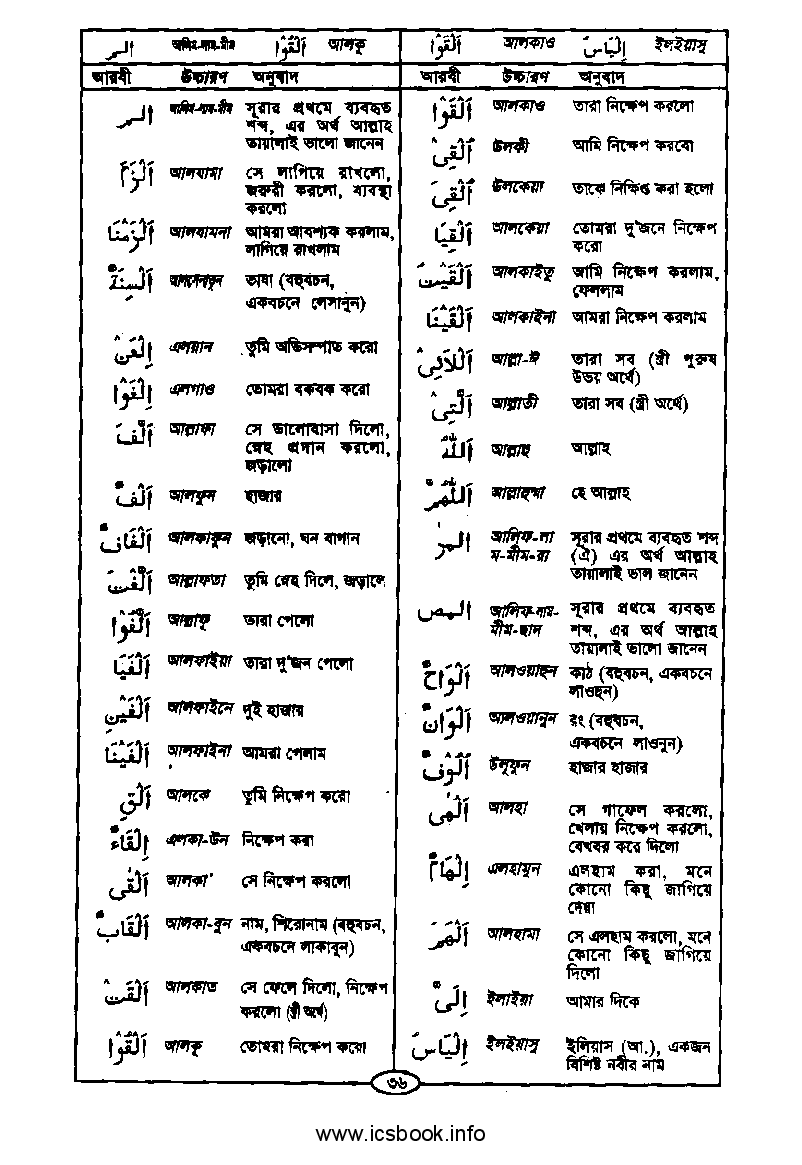 الٓمٓ আলিফ-লাম-মীম اَلْقُوْا আলকূ
আরবী উচ্চারণ অনুবাদ
الٓمٓ আলিফ-লাম-মীম সূরার প্রথমে ব্যবহৃত
শব্দ, এর অর্থ আল্লাহ
তায়ালাই ভালো জানেন
اَلْزَمَ আলযামা সে লাগিয়ে রাখলো,
জরুরী করলো, ব্যবস্থা
করলো
اَلْزَمْنَا আলযামনা আমরা আবশ্যক করলাম,
লাগিয়ে রাখলাম
اَلْسِنَةٌ আলসেনাতুন ভাষা (বহুবচন,
একবচনে লেসানুন)
اِلْعَنْ এলয়ান তুমি অভিসম্পাত করো
اِلْغَوْا এলগাও তোমরা বকবক করো
اَلَّفَ আল্লাফা সে ভালোবাসা দিলো,
স্নেহ প্রদান করলো,
জড়ালো
اَلْفٌ আলফুন হাজার
اَلْفَافٌ আলফাফুন জড়ানো, ঘন বাগান
اَلَّفْتَ আল্লাফতা তুমি স্নেহ দিলে, জড়ালে
اَلْفَوْا আল্লাফূ তারা পেলো
اَلْفَيَا আলফাইয়া তারা দু'জন পেলো
اَلْفَيْنِ আলফাইনে দুই হাজার
اَلْفَيْنَا আলফাইনা আমরা পেলাম
اَلْقِ আলকে তুমি নিক্ষেপ করো
اِلْقَاءٌ এলকা-উন নিক্ষেপ করা
اَلْقٰى আলকা' সে নিক্ষেপ করলো
اَلْقَابٌ আলকা-বুন নাম, শিরোনাম (বহুবচন,
একবচনে লাকাবুন)
اَلْقَتْ আলকাত সে ফেলে দিলো, নিক্ষেপ
করলো (স্ত্রী অর্থে)
اَلْقُوْا আলকূ তোমরা নিক্ষেপ করো
اَلْقَوْا আলকাও اِلْيَاسُ ইলইয়াসু
আরবী উচ্চারণ অনুবাদ
اَلْقَوْا আলকাও তারা নিক্ষেপ করলো
اُلْقِىْ উলকী আমি নিক্ষেপ করবো
اُلْقِىَ উলকেয়া তাকে নিক্ষিপ্ত করা হলো
اَلْقِيَا আলকেয়া তোমরা দু'জনে নিক্ষেপ
করো
اَلْقَيْتُ আলকাইতু আমি নিক্ষেপ করলাম,
ফেললাম
اَلْقَيْنَا আলকাইনা আমরা নিক্ষেপ করলাম
اَللَّآئِىْ আল্লা-ঈ তারা সব (স্ত্রী পুরুষ
উভয় অর্থে)
اَلَّتِىْ আল্লাতী তারা সব (স্ত্রী অর্থে)
اَللّٰهُ আল্লাহু আল্লাহ
اَللّٰهُمَّ আল্লাহুম্মা হে আল্লাহ
الٓمٓرٰ আলিফ-লা সূরার প্রথমে ব্যবহৃত শব্দ
ম-মীম-রা (ঐ) এর অর্থ আল্লাহ
তায়ালাই ভাল জানেন
الٓمٓصٓ আলিফ-লাম- সূরার প্রথমে ব্যবহৃত
মীম-ছাদ শব্দ, এর অর্থ আল্লাহ
তায়ালাই ভালো জানেন
اَلْوَاحٌ আলওয়াহুন কাঠ (বহুবচন, একবচনে
লাওহুন)
اَلْوَانٌ আলওয়ানুন রং (বহুবচন,
একবচনে লাওনুন)
اُلُوْفٌ উলূফুন হাজার হাজার
اَلْهٰى আলহা সে গাফেল করলো,
খেলায় নিক্ষেপ করলো,
বেখবর করে দিলো
اِلْهَامٌ এলহামুন এলহাম করা, মনে
কোনো কিছু জাগিয়ে
দেয়া
اَلْهَمَ আলহামা সে এলহাম করলো, মনে
কোনো কিছু জাগিয়ে
দিলো
اِلَىَّ ইলাইয়া আমার দিকে
اِلْيَاسُ ইলইয়াসু ইলিয়াস (আ.), একজন
বিশিষ্ট নবীর নাম
৩৬
www.icsbook.info